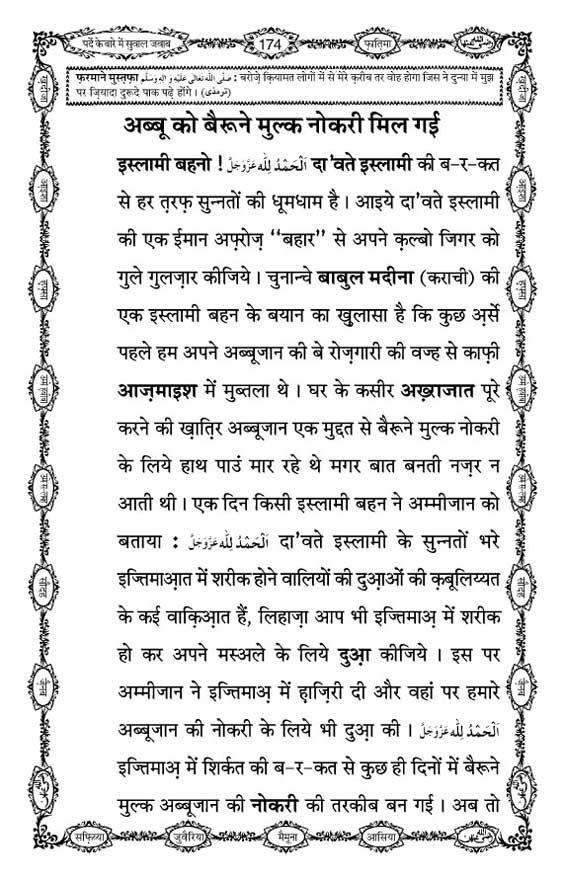 पर्दे के बारे में सुवाल जवाब
174
फ़ातिमा
फ़रमाने मुस्तफ़ा صَلَّى اللهُ تَعَالٰى عَلَيْهِ وَاٰلِهٖ وَسَلَّم : बरोज़े क़ियामत लोगों में से मेरे क़रीब तर वोह होगा जिस ने दुन्या में मुझ
पर ज़ियादा दुरूदे पाक पढ़े होंगे । (ترمذی)
अब्बू को बैरूने मुल्क नोकरी मिल गई
इस्लामी बहनो ! اَلْحَمْدُ لِلّٰه عَزَّوَجَلَّ दा'वते इस्लामी की ब-र-कत
से हर त़रफ़ सुन्नतों की धूमधाम है । आइये दा'वते इस्लामी
की एक ईमान अफ़्रोज़ ‘‘बहार’’ से अपने क़ल्बो जिगर को
गुले गुलज़ार कीजिये । चुनान्चे बाबुल मदीना (कराची) की
एक इस्लामी बहन के बयान का खुलासा है कि कुछ अ़र्से
पहले हम अपने अब्बूजान की बे रोज़गारी की वज्ह से काफ़ी
आज़माइश में मुब्तला थे । घर के कसीर अख़्राजात पूरे
करने की ख़ात़िर अब्बूजान एक मुद्दत से बैरूने मुल्क नोकरी
के लिये हाथ पाउं मार रहे थे मगर बात बनती नज़र न
आती थी । एक दिन किसी इस्लामी बहन ने अम्मीजान को
बताया : اَلْحَمْدُ لِلّٰه عَزَّوَجَلَّ दा'वते इस्लामी के सुन्नतों भरे
इज्तिमाआ़त में शरीक होने वालियों की दुआ़ओं की क़बूलिय्यत
के कई वाक़िआ़त हैं, लिहाज़ा आप भी इज्तिमाअ़ में शरीक
हो कर अपने मस्अले के लिये दुआ़ कीजिये । इस पर
अम्मीजान ने इज्तिमाअ़ में ह़ाज़िरी दी और वहां पर हमारे
अब्बूजान की नोकरी के लिये भी दुआ़ की । اَلْحَمْدُ لِلّٰه عَزَّوَجَلَّ
इज्तिमाअ़ में शिर्कत की ब-र-कत से कुछ ही दिनों में बैरूने
मुल्क अब्बूजान की नोकरी की तरकीब बन गई । अब तो
सफ़िय्या
जुवैरिया
मैमूना
आसिया